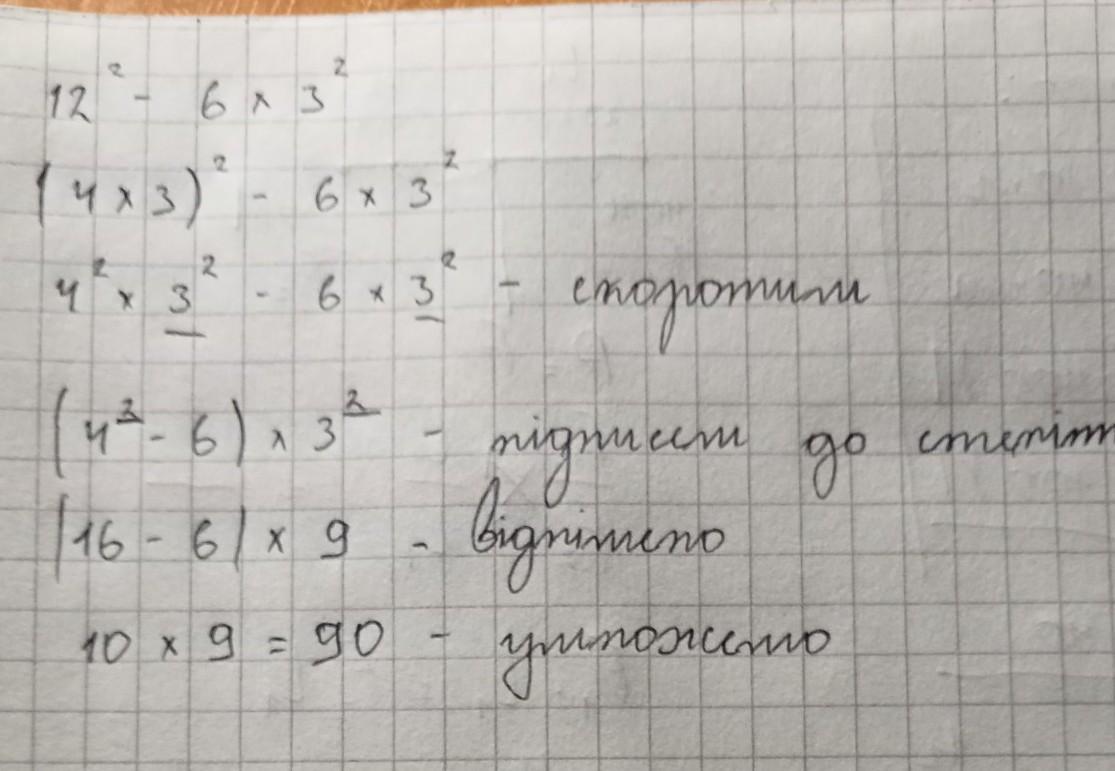 12² - 6 × 3²
(4 × 3)² - 6 × 3²
4² × 3² - 6 × 3² - скоротили
(4² - 6) × 3² - підносим до степіт
(16 - 6) × 9 - віднімемо
10 × 9 = 90 - умножемо